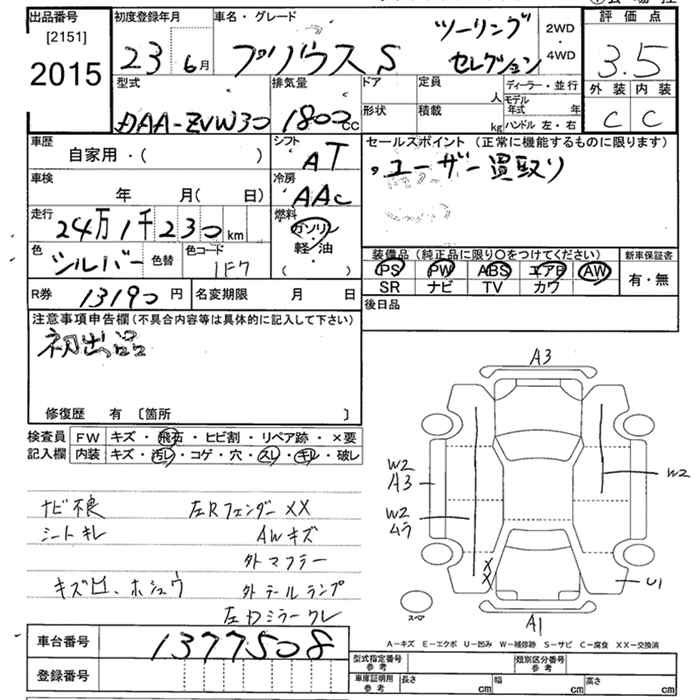 出品番号 初度登録年月 車名・グレード 評価点
[2151]
2015
23 6月 プリウス S ツーリング セレクション 2WD 4WD 3.5
型式 排気量 ドア 定員 人 ディーラー・並行 外装 内装
DAA-ZVW30 1800cc 形状 積載 kg モデル年式 年 ハンドル 左・右 C C
車歴 自家用・( ) シフト AT セールスポイント (正常に機能するものに限ります)
ユーザー買取り
車検 年 月( 日) 冷房 AAC
走行 24万1千230km 燃料 ガソリン 軽・油 ( )
色 シルバー 色替 色コード 1F7
装備品 (純正品に限り○をつけてください) 新車保証書
PS PW ABS エアB AW 有・無
SR ナビ TV カワ
R券 13190円 名変期限 月 日
後日品
注意事項申告欄 (不具合内容等は具体的に記入して下さい)
初出品
修復歴 有 [箇所 ]
検査員記入欄 FW キズ・飛石・ヒビ割・リペア跡・×要
内装 キズ・汚レ・コゲ・穴・スレ・キレ・破レ
A3
W2
A3
W2
W2
ムラ
XX
U1
スペア
A1
ナビ不良 左Rフェンダー XX
シートキレ AWキズ
外マフラー
キズ凹、ホシュウ 外テールランプ
左ドミラーワレ
A-キズ E-エクボ U-凹み W-補修跡 S-サビ C-腐食 XX-交換済
車台番号 1377508
登録番号
型式指定番号 参考 類別区分番号 参考
車庫証明用 参考 長さ cm 幅 cm 高さ cm